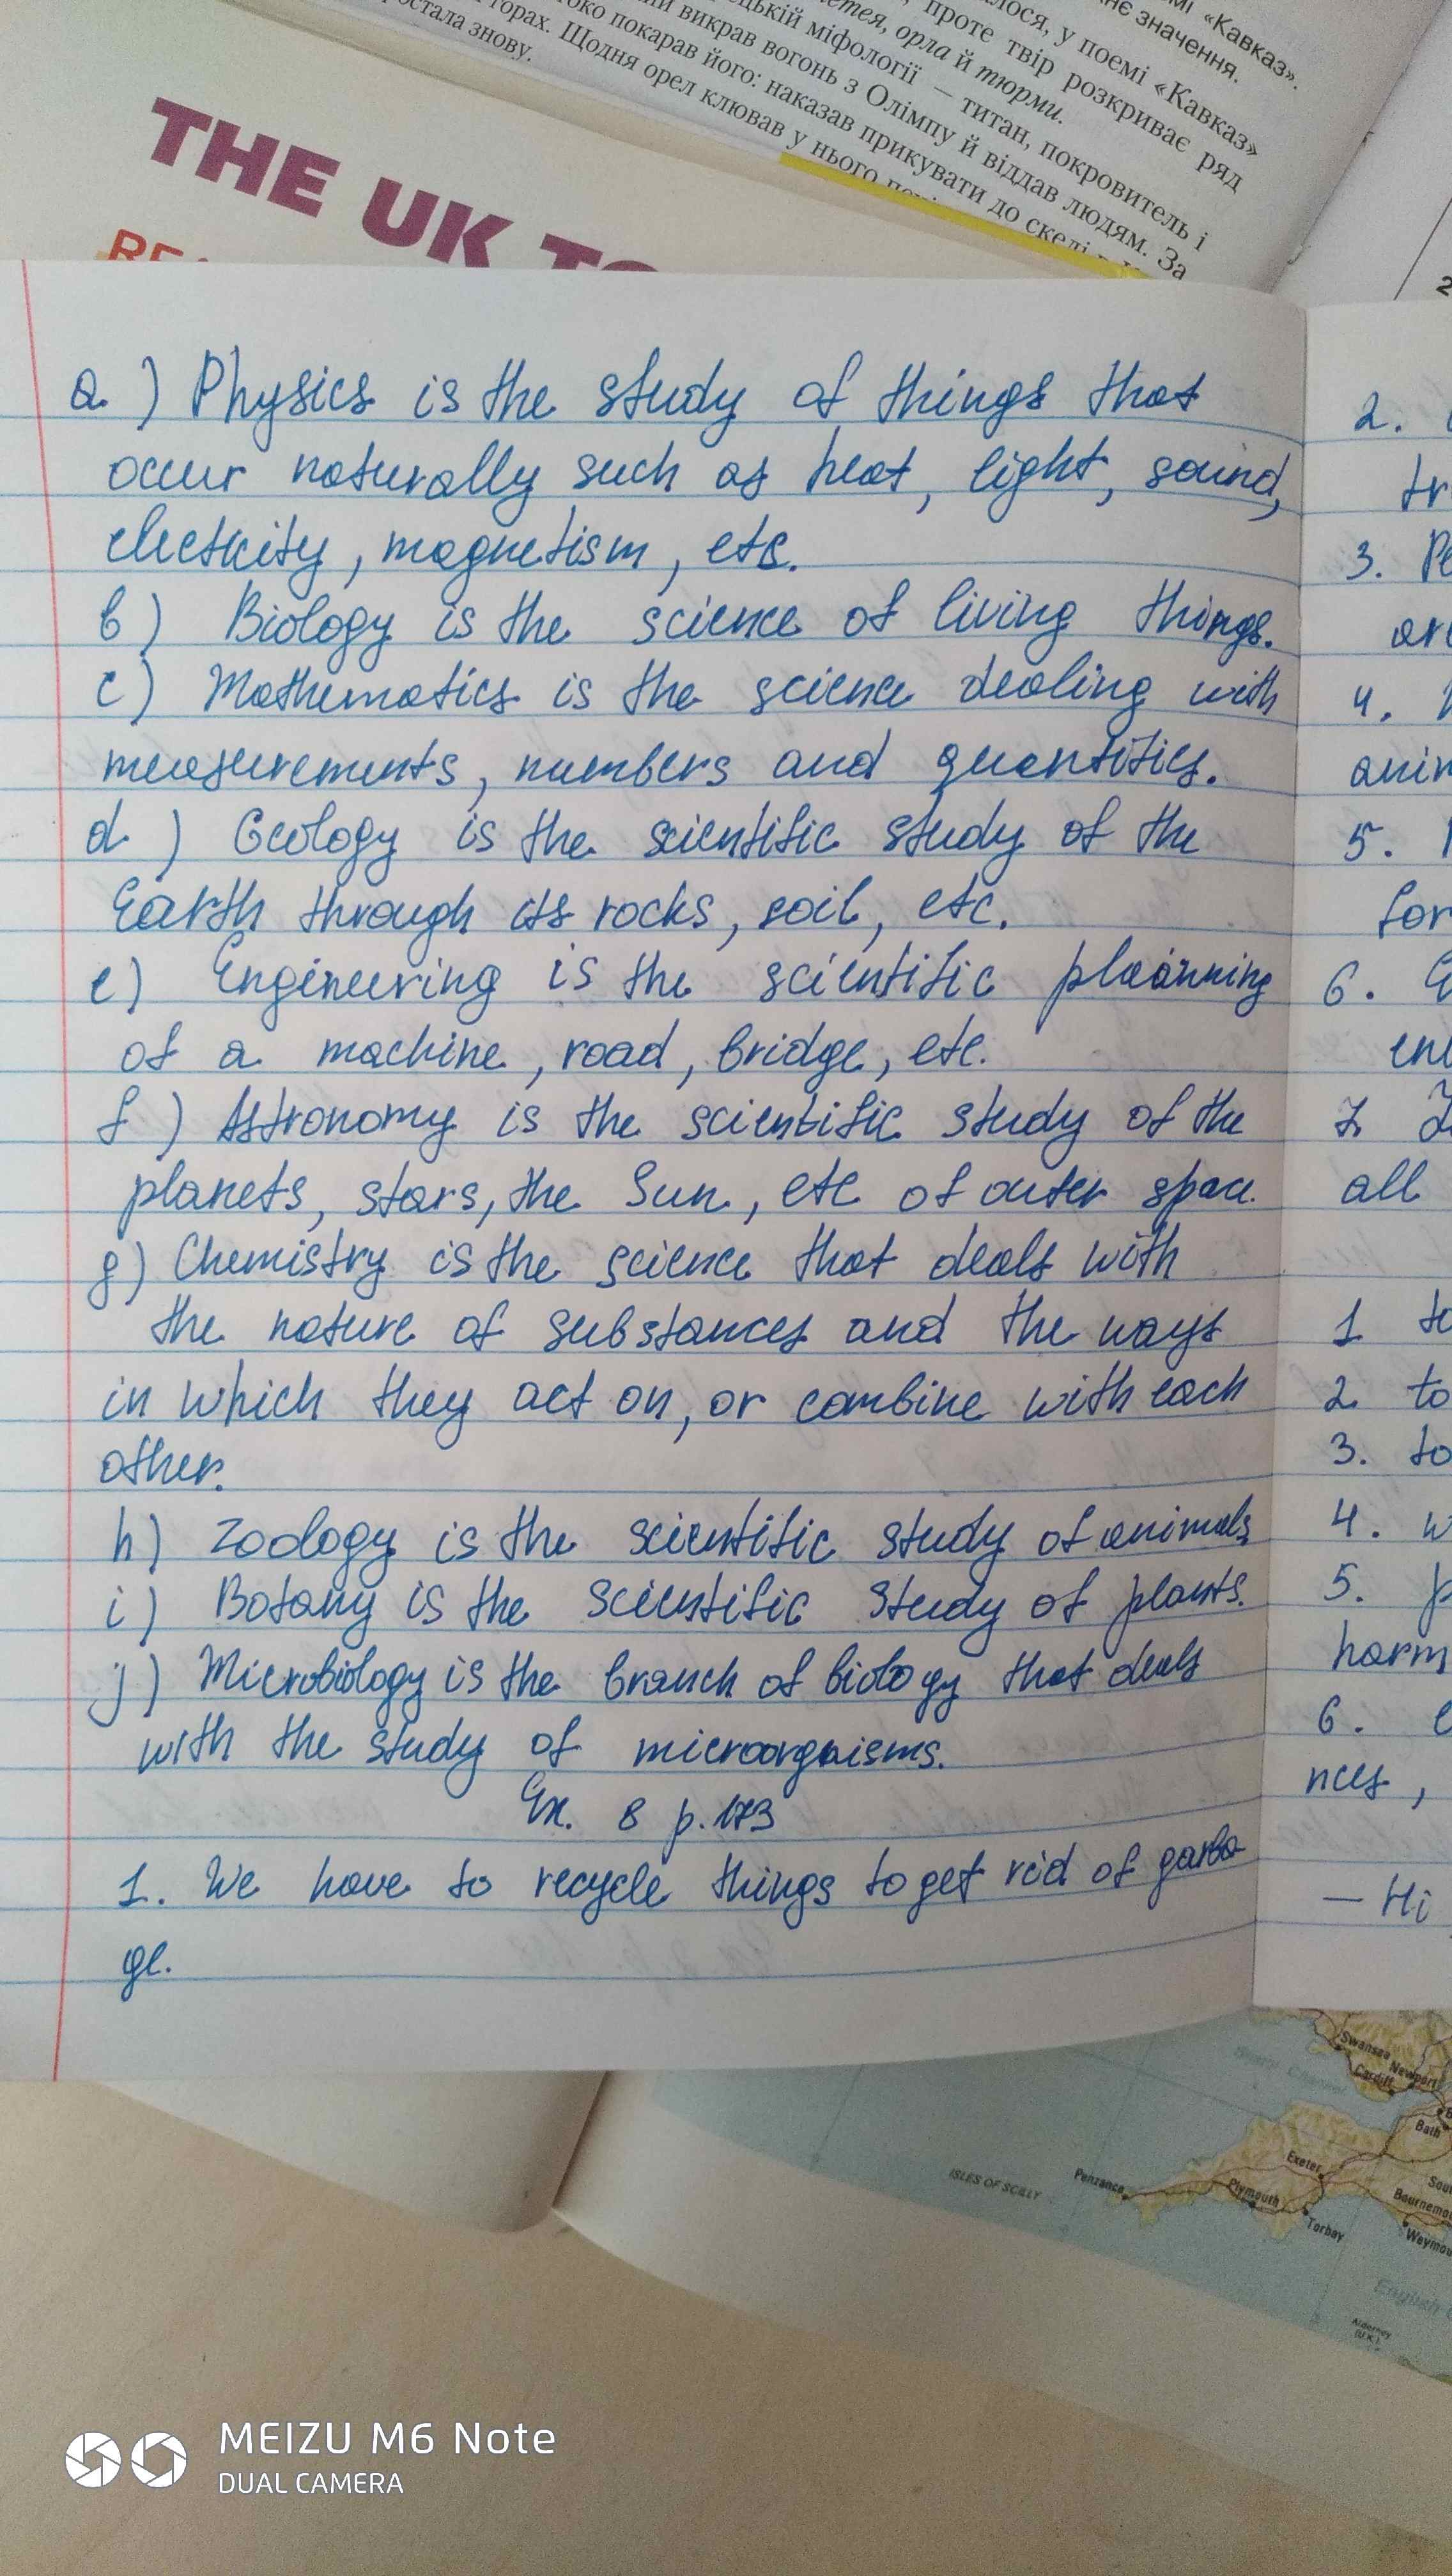 мі «Кавказ».
нє значення.
лося, у поемі «Кавказ»
, проте твір розкриває ряд
етея, орла й тюрми.
цькій міфології – титан, покровитель і
викрав вогонь з Олімпу й віддав людям. За
око покарав його: наказав прикувати до скелі
горах. Щодня орел клював у нього
остала знову.
THE UK
a.) Physics is the study of things that
occur naturally such as heat, light, sound,
electricity, magnetism, etc.
b) Biology is the science of living things.
c) Mathematics is the science dealing with
measurements, numbers and quantities.
d.) Geology is the scientific study of the
Earth through its rocks, soil, etc.
e) Engineering is the scientific planning
of a machine, road, bridge, etc.
f) Astronomy is the scientific study of the
planets, stars, the Sun, etc of outer space.
g) Chemistry is the science that deals with
the nature of substances and the ways
in which they act on, or combine with each
other.
h) Zoology is the scientific study of animals
i) Botany is the scientific study of plants.
j) Microbiology is the branch of biology that deals
with the study of microorgaisms.
Ex. 8 p. 173
1. We have to recycle things to get rid of garba
ge.
2.
tr
3. Pe
are
4.
anim
5.
for
6.
en
7.
all
1 to
2. to
3. to
4. w
5. p
harm
6. e
nces,
– Hi
Swansea
Newport
Cardiff
Bath
ISLES OF SCILLY
Penzance
Exeter
Plymouth
Torbay
Bournemo
Weymou
English
Alderney
(U.K.)
MEIZU M6 Note
DUAL CAMERA